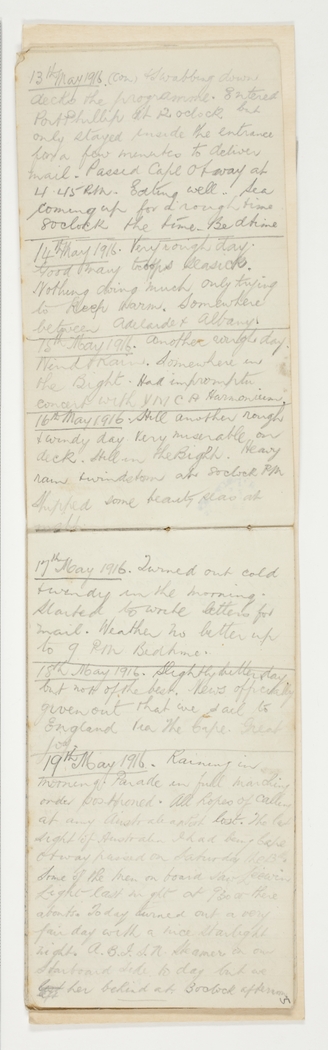 13th May 1916. Con & Swabbing down
decks the programme. Entered
Port Phillip at 12 oclock but
only stayed inside the entrance
for a few minutes to deliver
mail. Passed Cape Otway at
4.45 P.M. Eating well. Sea
coming up for a rough time
8 oclock the time. Bedtime
14th May 1916. Very rough day.
Good many troops seasick.
Nothing doing much only trying
to keep warm. Somewhere
between Adelaide & Albany.
15th May 1916. Another rough day.
Wind & Rain. Somewhere in
the Bight. Had impromptu
concert with Y M C A Harmonium.
16th May 1916. Still another rough
& windy day very miserable on
deck. Still in the Bight. Heavy
rain & windstorm at 8 oclock PM
Shipped some beauty seas at
17th May 1916. Turned out cold
& windy in the morning.
Started to write letters for
mail. Weather no better up
to 9 P.M. Bedtime.
18th May 1916. Slightly better day
but not of the best. News officially
given out that we sail to
England via the Cape. Great
joy
19th May 1916. Raining in
morning. Parade in full marching
order postponed. All hopes of calling
at any Australian port lost. The last
sight of Australia I had being Cape
Otway passed on Saturday the 13th
Some of the men on board saw
Light last night at 9.30 or there
abouts. Today turned out a very
fair day with a nice starlight
night. A. B. I. S. N. Steamer on our
Starboard side to day but we
left her behind at 3 oclock afternoon
5